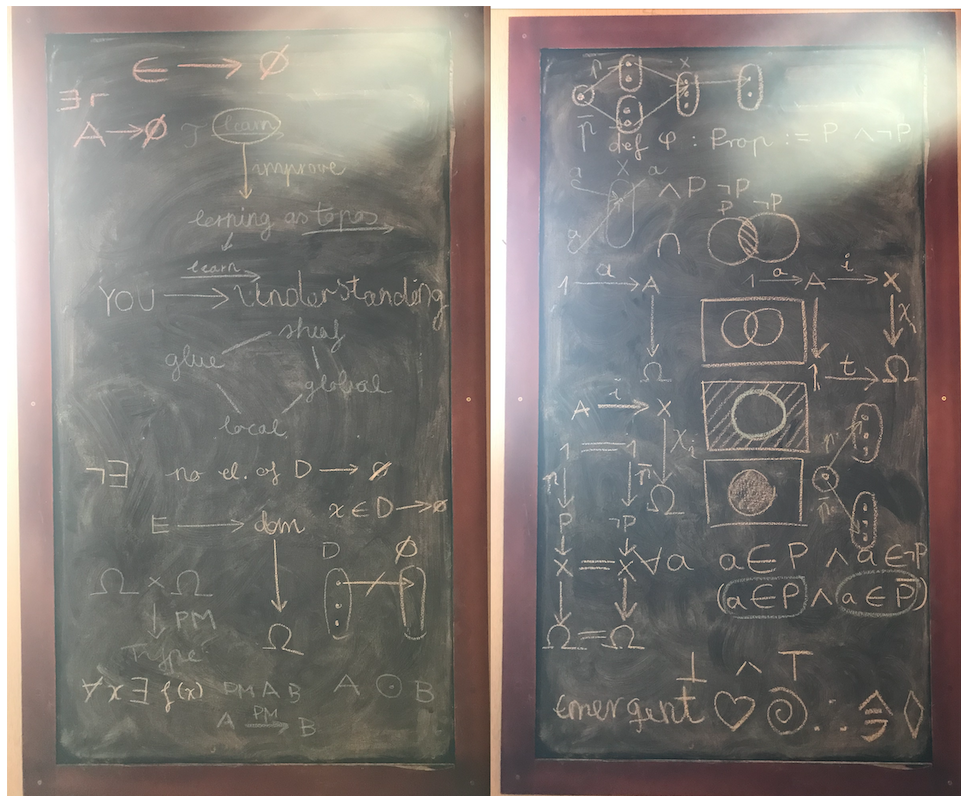 ∈ → ∅
∃r
A → ∅
learn
improve
lerning as topos
learn
YOU → Understanding
sheaf
glue
global
local
¬∃ no el. of D → ∅
x ∈ D → ∅
E → dom
D ∅
Ω × Ω
Ω
PM
Type
∀x ∃ f(x) PM A B A ⊙ B
A PM→ B
p x
p̄ def φ : Prop := P ∧ ¬P
a x a ∧ P ¬P
P ¬P
a ∩
1 a→ A 1 a→ A i→ X
χi
Ω 1 t→ Ω
A i→ X
χi
1 = 1
p p̄ Ω
P ¬P
p
p̄
X = X ∀a a ∈ P ∧ a ∈ ¬P
(a ∈ P ∧ a ∈ P̄)
Ω = Ω
⊥ ∧ ⊤
emergent ♡